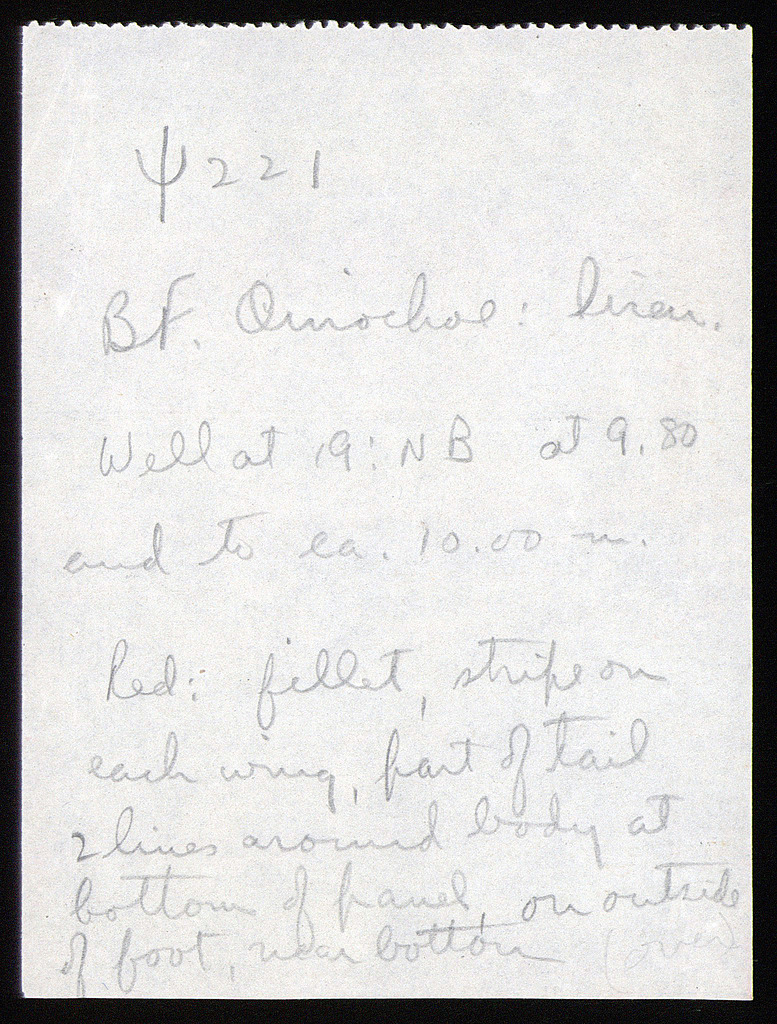 Ψ 221
BF. Oinochoe: Siren.
Well at 19:NB at 9.80
and to ca. 10.00 m.
Red: fillet, stripe on
each wing, part of tail
2 lines around body at
bottom of panel, on outside
of foot, near bottom (over)